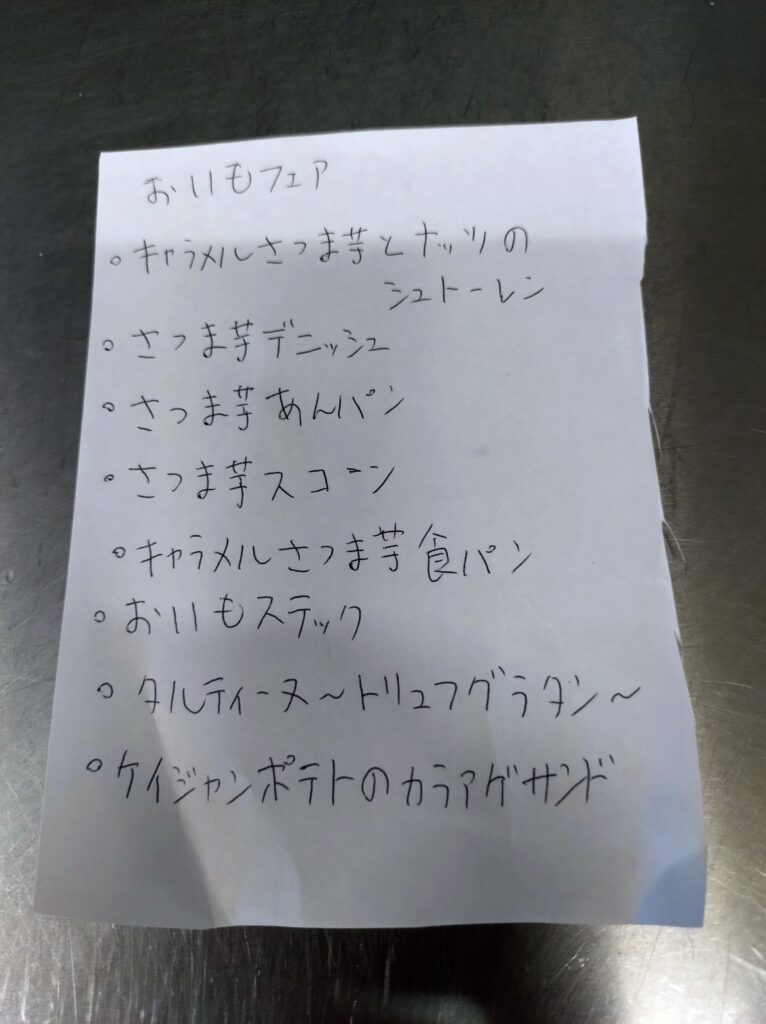 おいもフェア
○キャラメルさつま芋とナッツの
シュトーレン
○さつま芋デニッシュ
○さつま芋あんパン
○さつま芋スコーン
○キャラメルさつま芋食パン
○おいもスティック
○タルティーヌ～トリュフグラタン～
○ケイジャンポテトのカラアゲサンド